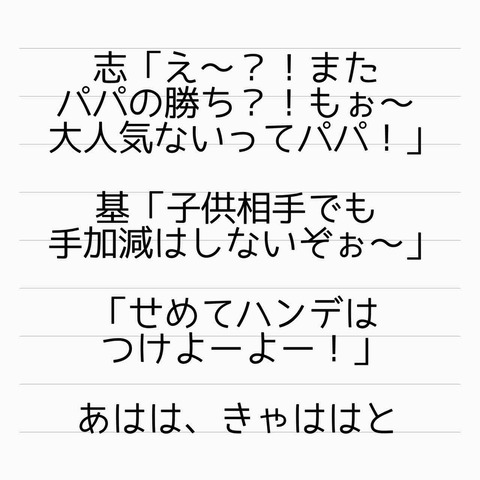 志「え〜？！また
パパの勝ち？！もぉ〜
大人気ないってパパ！」
基「子供相手でも
手加減はしないぞぉ〜」
「せめてハンデは
つけよーよー！」
あはは、きゃははと